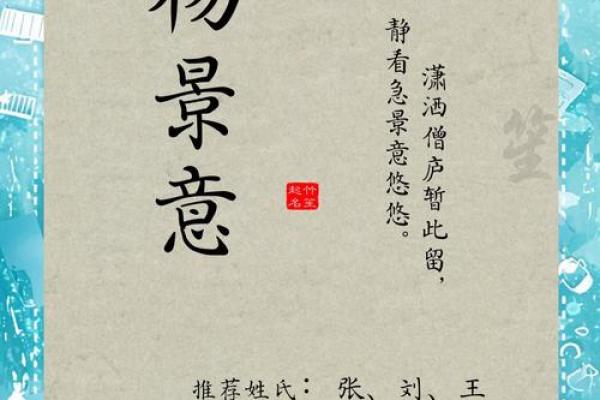 杨景意
潇洒僧庐暂此留，
静看急景意悠悠。
笙
竹笙
起名
推荐姓氏：张、刘、王